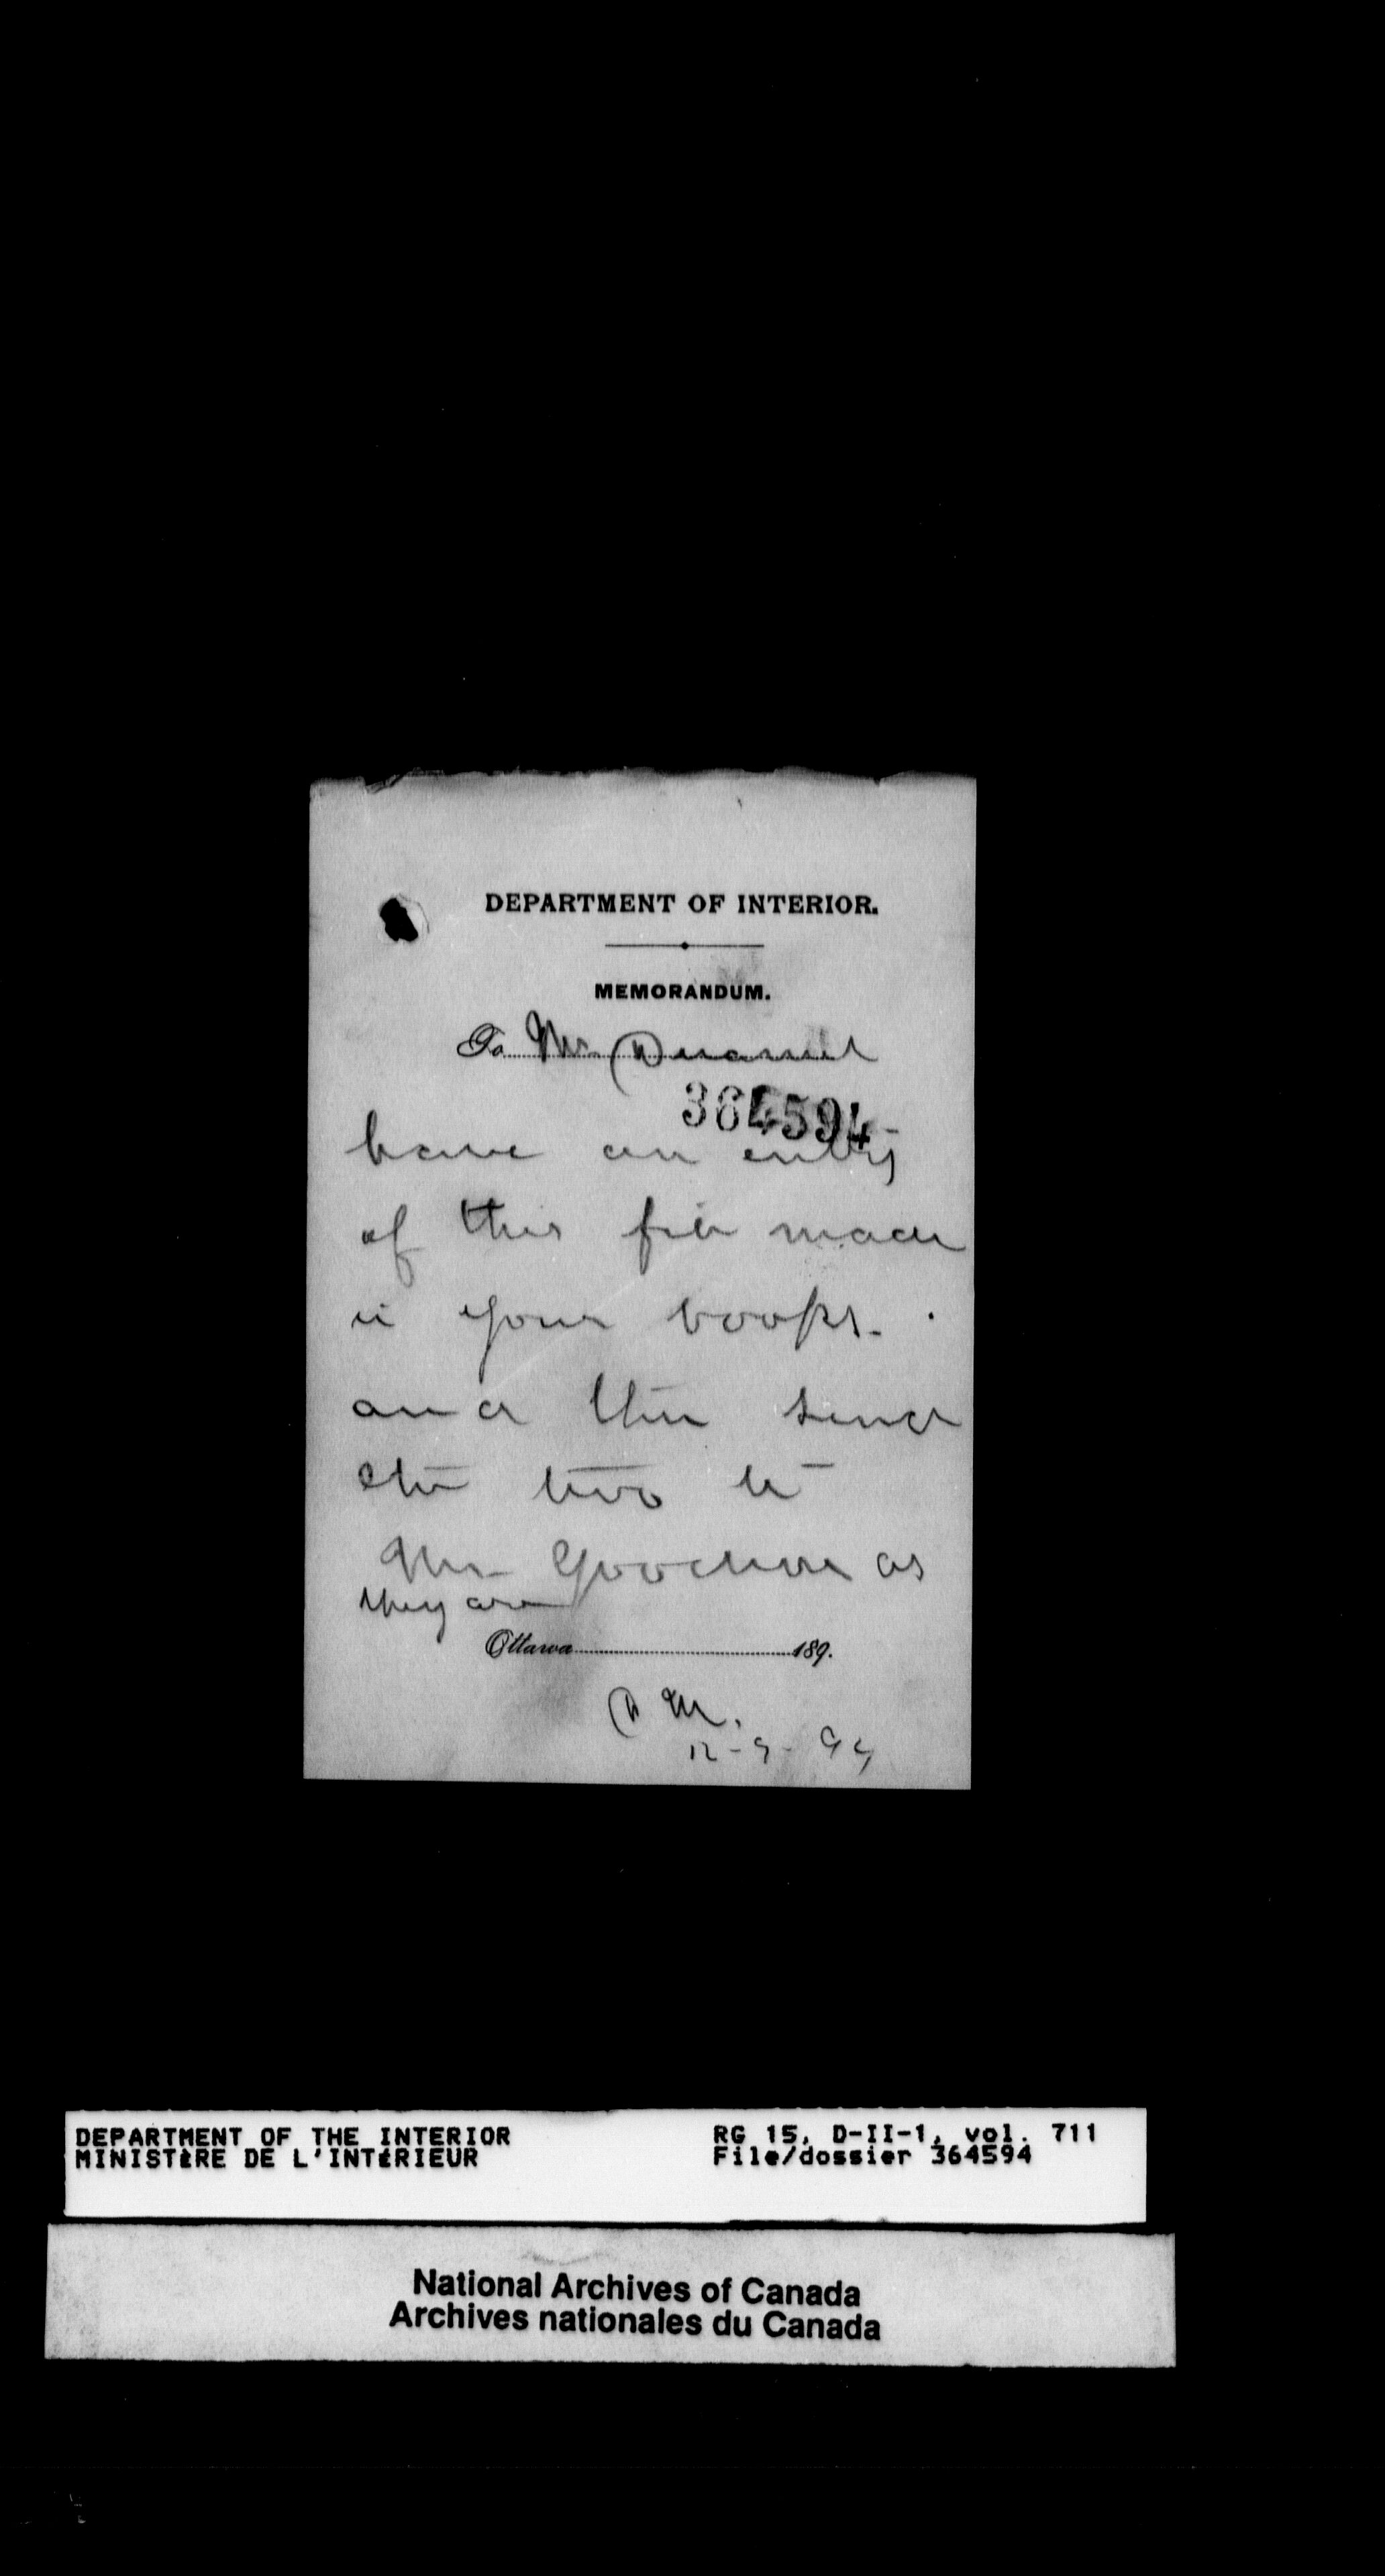 DEPARTMENT OF INTERIOR.
MEMORANDUM.
To Mr.
364594
have an entry
of this file made
in your books.
and then send
the two to
Mr. Goodeve as
they are
Ottawa 189.
D M.
12-9-94
DEPARTMENT OF THE INTERIOR RG 15, D-II-1, vol. 711
MINISTÈRE DE L'INTÉRIEUR File/dossier 364594
National Archives of Canada
Archives nationales du Canada